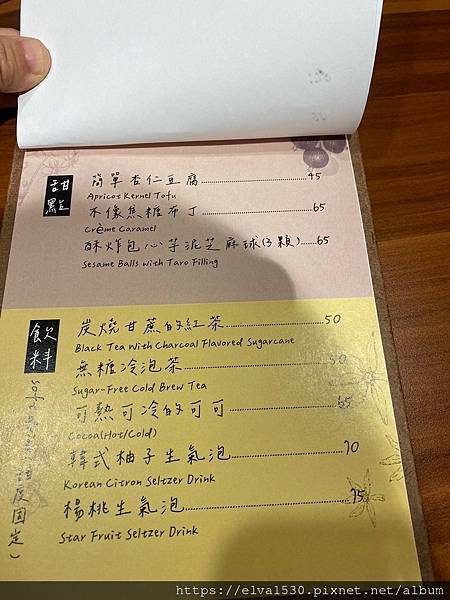 甜點
簡單杏仁豆腐 45
Apricot Kernel Tofu
不像焦糖布丁 65
Crème Caramel
酥炸包心芋泥芝麻球(3顆) 65
Sesame Balls with Taro Filling
飲料
炭燒甘蔗的紅茶 50
Black Tea With Charcoal Flavored Sugarcane
無糖冷泡茶 50
Sugar-Free Cold Brew Tea
可熱可冷的可可 65
Cocoa(Hot/Cold)
韓式柚子生氣泡 70
Korean Citron Seltzer Drink
楊桃生氣泡 75
Star Fruit Seltzer Drink
甜度固定)
https://elva1530.pixnet.net/album